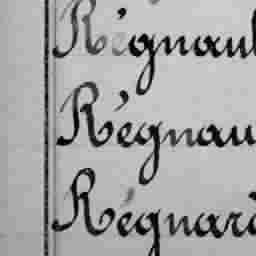 Régnaul
Régnau
Régnard